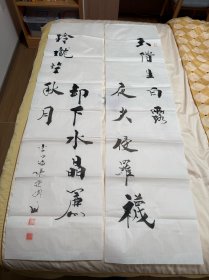 玉階生白露
夜久侵羅襪
却下水晶簾
玲瓏望秋月
李白